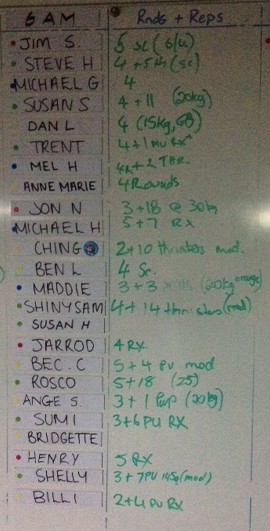 6AM Rnds + Reps
JIM S. 5 sc (6/u)
STEVE H 4 + 5th (sc)
MICHAEL G 4
SUSAN S 4 + 11 (20kg)
DAN L 4 (15kg, GB)
TRENT 4 + 1 MU RX
MEL H 4RX + 2 THR
ANNE MARIE 4 Rounds
JON N 3 + 18 @ 30kg
MICHAEL H 5 + 7 RX
CHING 2 + 10 thrusters mod.
BEN L 4 Sc.
MADDIE 3 + 3 (20kg
SHINY SAM 4 + 14 thrusters (mod)
SUSAN H
JARROD 4 RX
BEC. C 5 + 4 PU mod
ROSCO 5 + 18 (25)
ANGE S 3 + 1 Pup (20kg)
SUMI 3 + 6 PU RX
BRIDGETTE
HENRY 5 RX
SHELLY 3 + 7PU (mod)
BILLI 2 + 4 PU RX